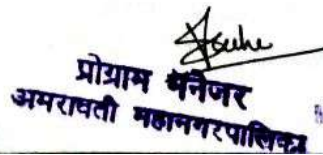 प्रोग्राम मॅनेजर
अमरावती महानगरपालिका